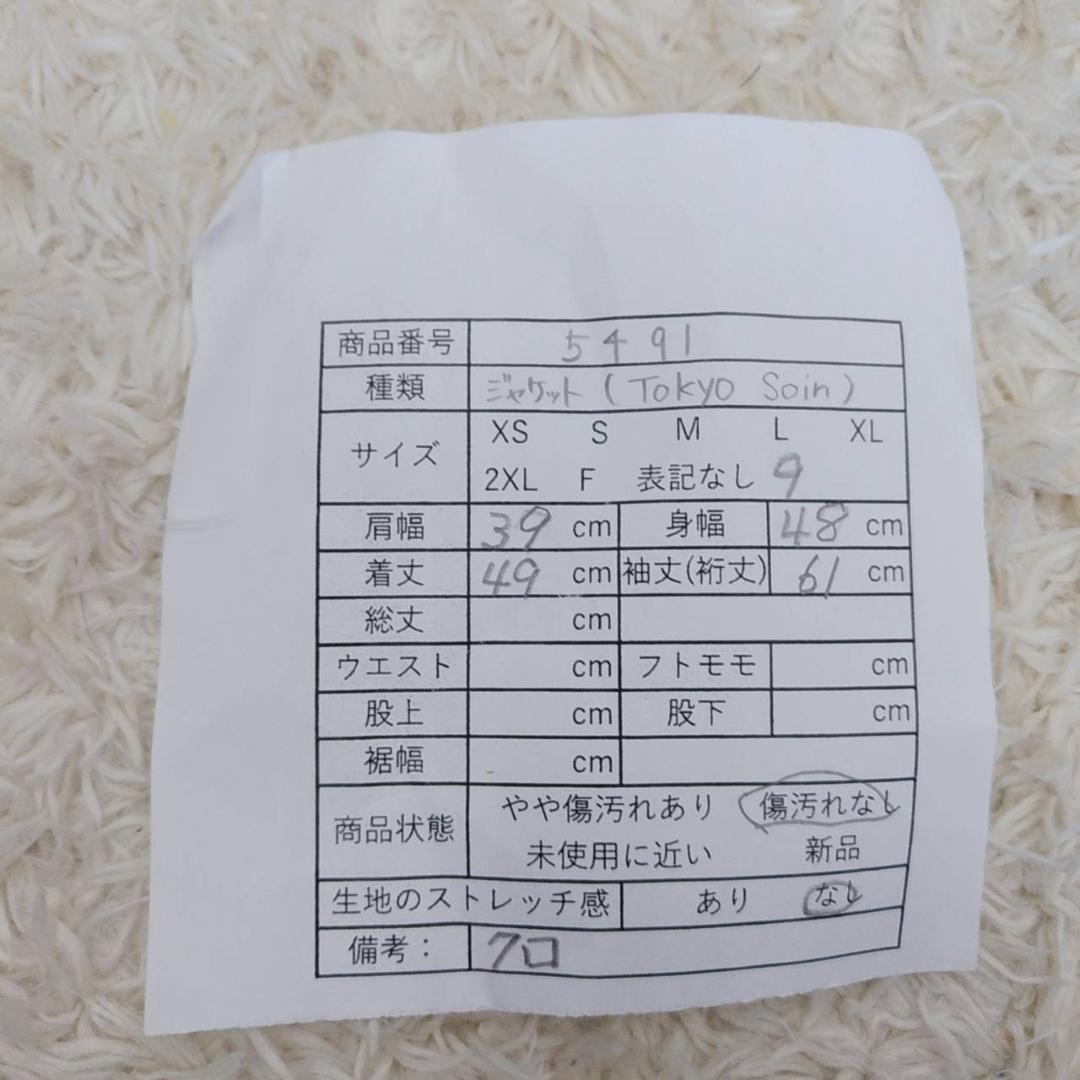 商品番号 5491
種類 ジャケット (Tokyo Soin)
サイズ XS S M L XL
2XL F 表記なし 9
肩幅 39 cm 身幅 48 cm
着丈 49 cm 袖丈(裄丈) 61 cm
総丈 cm
ウエスト cm フトモモ cm
股上 cm 股下 cm
裾幅 cm
商品状態 やや傷汚れあり 傷汚れなし
未使用に近い 新品
生地のストレッチ感 あり なし
備考： クロ